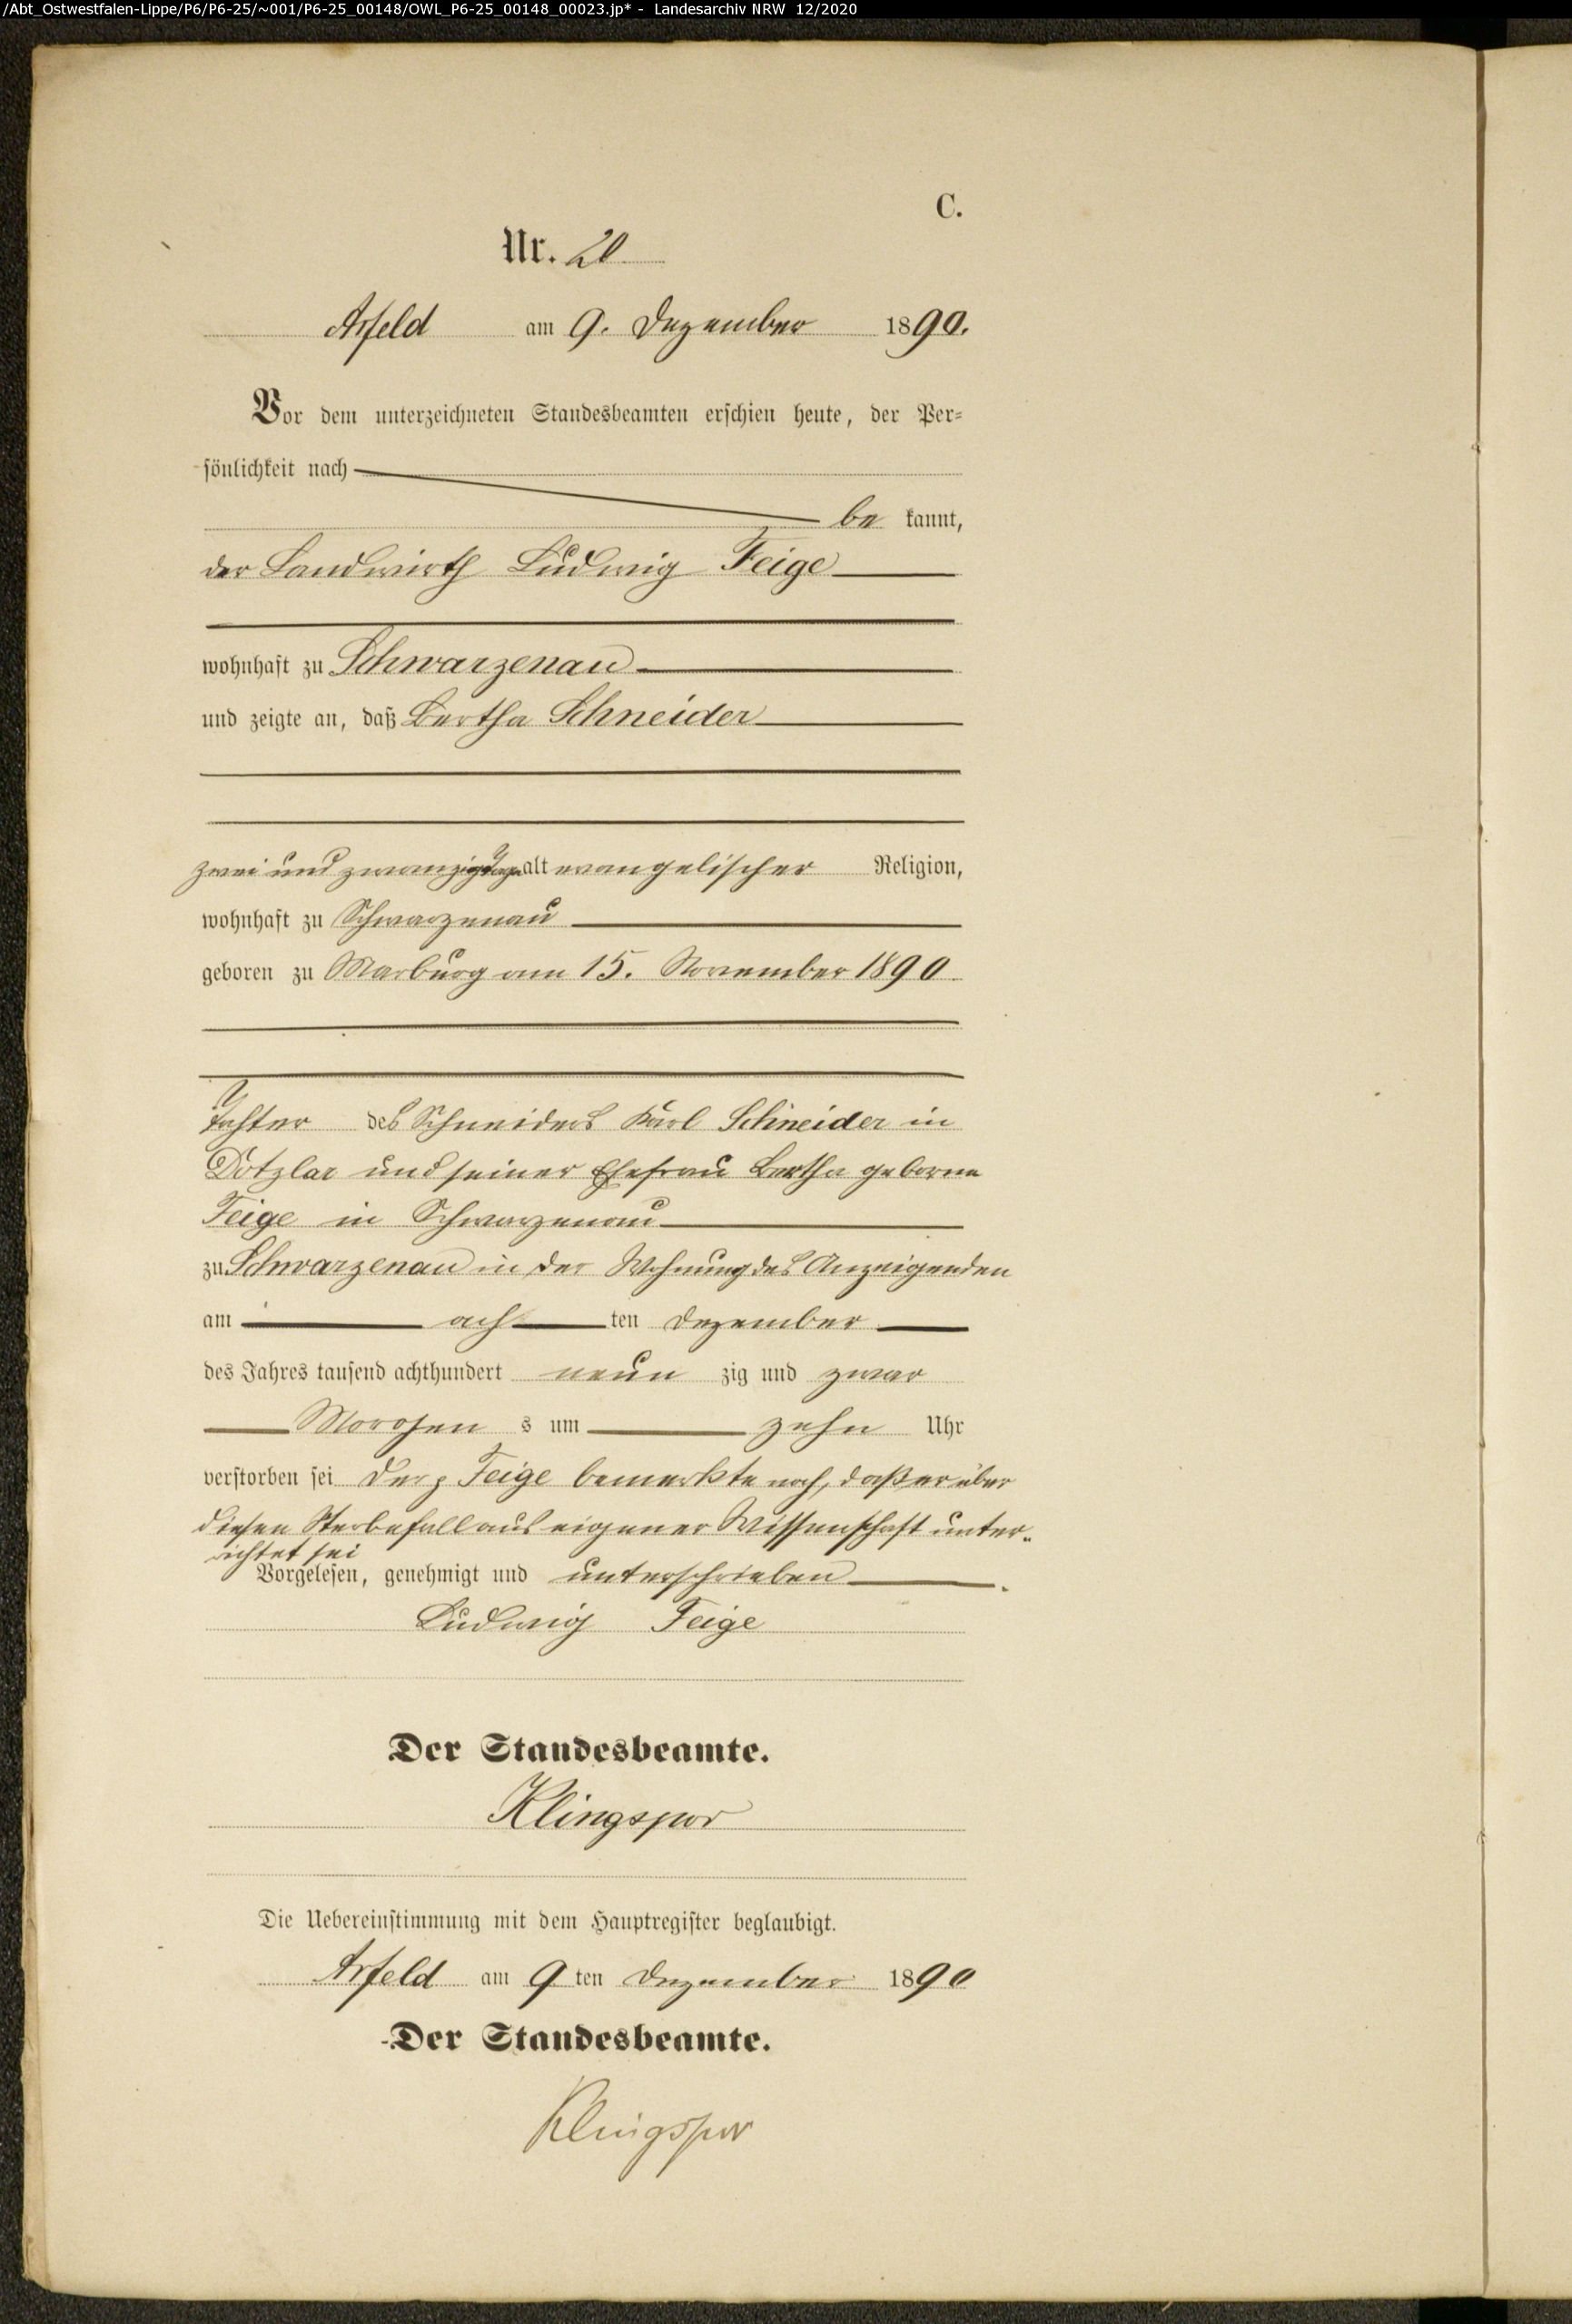 /Abt_Ostwestfalen-Lippe/P6/P6-25/~001/P6-25_00148/OWL_P6-25_00148_00023.jp* - Landesarchiv NRW 12/2020
C.
Nr. 20
Arfeld am 9. Dezember 1890.
Vor dem unterzeichneten Standesbeamten erschien heute, der Per-
sönlichkeit nach
be kannt,
der Landwirth Ludwig Feige
wohnhaft zu Schwarzenau
und zeigte an, daß Bertha Schneider
zwei und zwanzig Tage alt evangelischer Religion,
wohnhaft zu Schwarzenau
geboren zu Marburg am 15. November 1890
Tochter des Schneiders Karl Schneider in
Dotzlar und seiner Ehefrau Bertha geborne
Feige in Schwarzenau
zu Schwarzenau in der Wohnung des Anzeigenden
am ach ten Dezember
des Jahres tausend achthundert neun zig und zwar
Morgen s um zehn Uhr
verstorben sei Der p Feige bemerkte noch, daß er über
diesen Sterbefall aus eigener Wissenschaft unter-
richtet sei
Vorgelesen, genehmigt und unterschrieben
Ludwig Feige
Der Standesbeamte.
Klingspor
Die Uebereinstimmung mit dem Hauptregister beglaubigt.
Arfeld am 9 ten Dezember 1890
Der Standesbeamte.
Klingspor